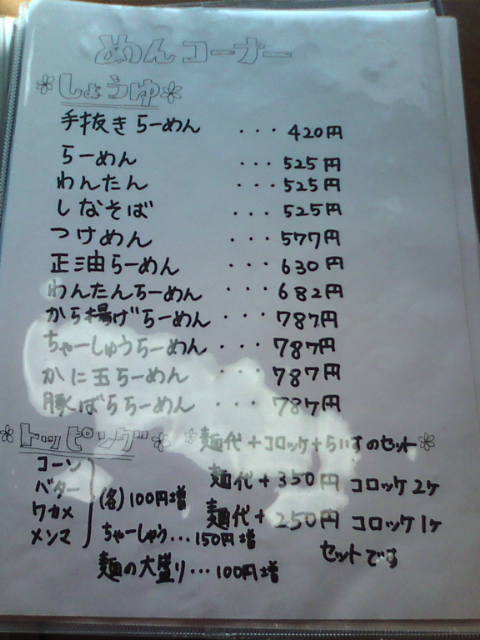 めんコーナー
*しょうゆ*
手抜きらーめん ・・・ 420円
らーめん ・・・ 525円
わんたん ・・・ 525円
しなそば ・・・ 525円
つけめん ・・・ 577円
正油らーめん ・・・ 630円
わんたんらーめん ・・・ 682円
から揚げらーめん ・・・ 787円
ちゃーしゅうらーめん ・・・ 787円
かに玉らーめん ・・・ 787円
豚ばららーめん ・・・ 787円
*トッピング*
コーン
バター
ワカメ
メンマ
(各)100円増
ちゃーしゅう・・・150円増
麺の大盛り・・・100円増
*麺代+コロッケ+らいすのセット*
麺代+350円 コロッケ2ヶ
麺代+250円 コロッケ1ヶ
セットです